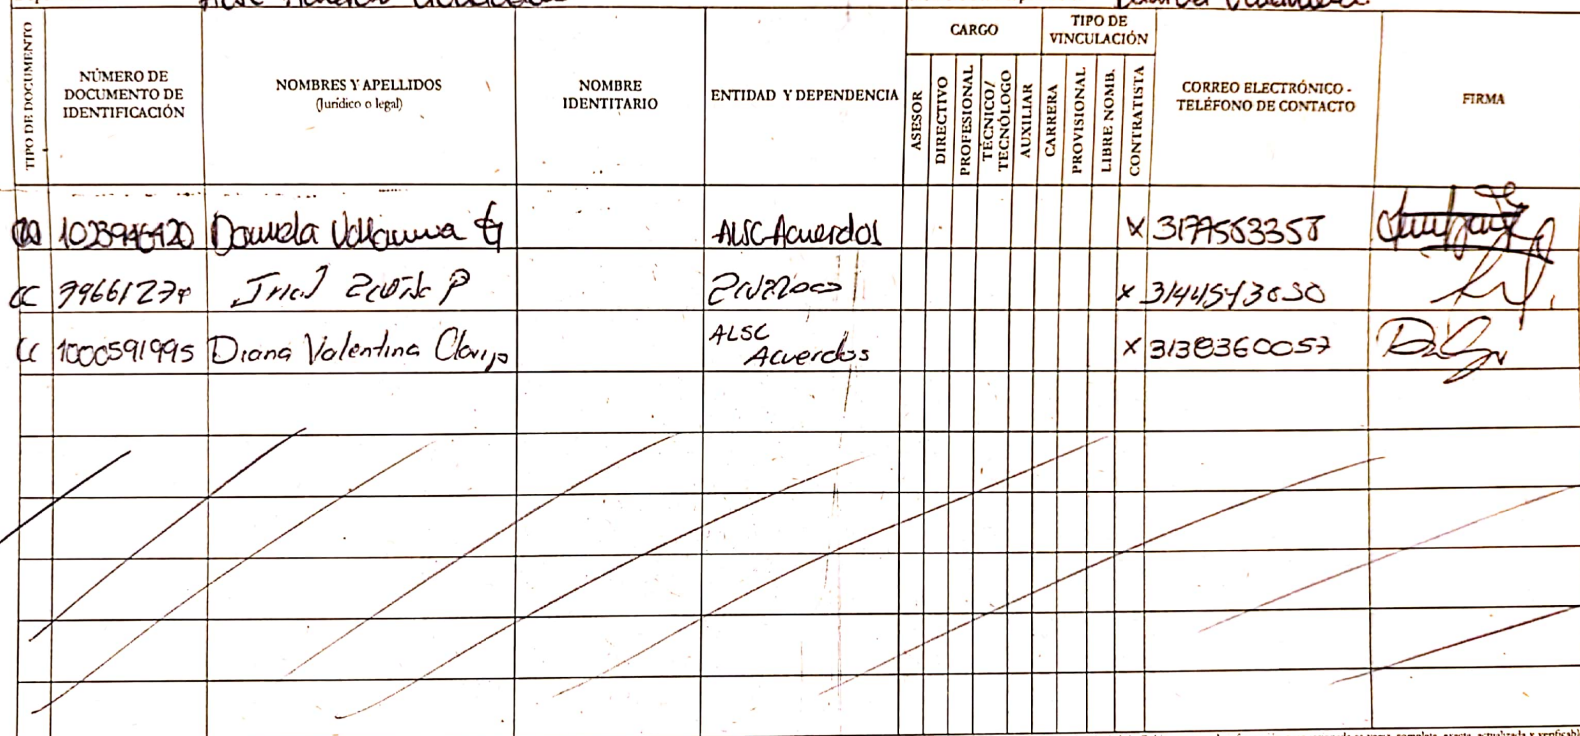 CARGO
TIPO DE
VINCULACIÓN
TIPO DE DOCUMENTO
NÚMERO DE
DOCUMENTO DE
IDENTIFICACIÓN
NOMBRES Y APELLIDOS
(Jurídico o legal)
NOMBRE
IDENTITARIO
ENTIDAD Y DEPENDENCIA
ASESOR
DIRECTIVO
PROFESIONAL
TECNICO/
TECNÓLOGO
AUXILIAR
CARRERA
PROVISIONAL
LIBRE NOMB.
CONTRATISTA
CORREO ELECTRÓNICO -
TELÉFONO DE CONTACTO
FIRMA
1023946420 Daniela ALSC-Acuerdos X 3177553358
CC P X 3144543030
CC 1000591995 Diana Valentina Clavijo ALSC
Acuerdos X 3138360057